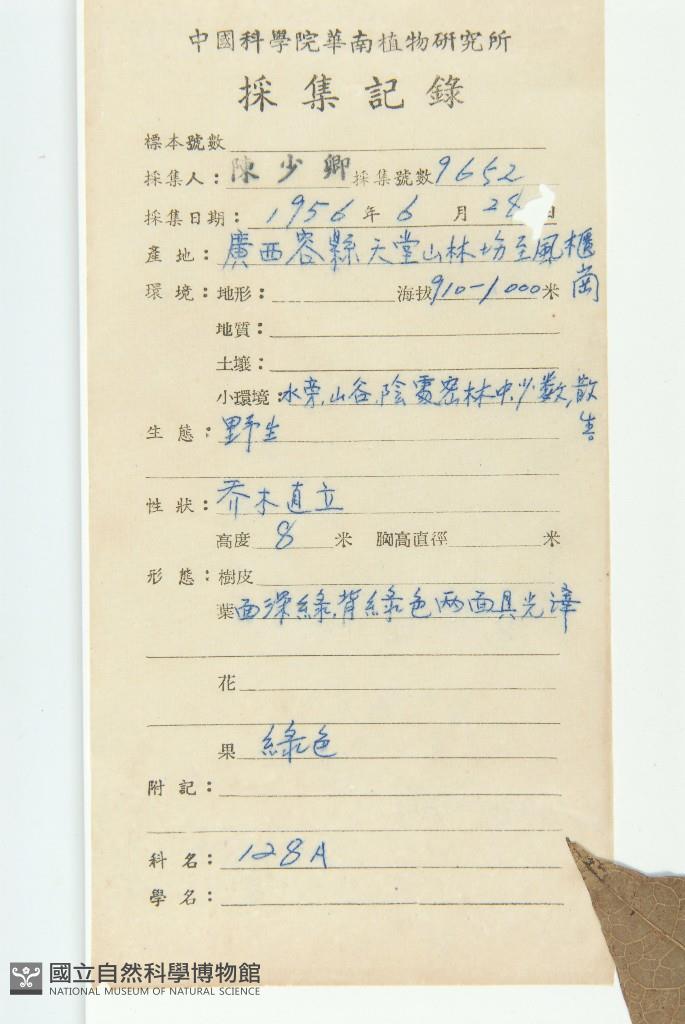 中國科學院華南植物研究所
採集記錄
標本號數
採集人：陳少卿 採集號數 9652
採集日期：1956年6月28日
產地：廣西容縣天堂山林场至風櫃崗
環境：地形： 海拔 910-1000米
地質：
土壤：
小環境：水旁,山谷,陰處密林中,少数,散生
生態：野生
性狀：乔木直立
高度 8 米 胸高直徑 米
形態：樹皮
葉 面深綠,背綠色两面具光澤
花
果 綠色
附記：
科名：128A
學名：
國立自然科學博物館
NATIONAL MUSEUM OF NATURAL SCIENCE